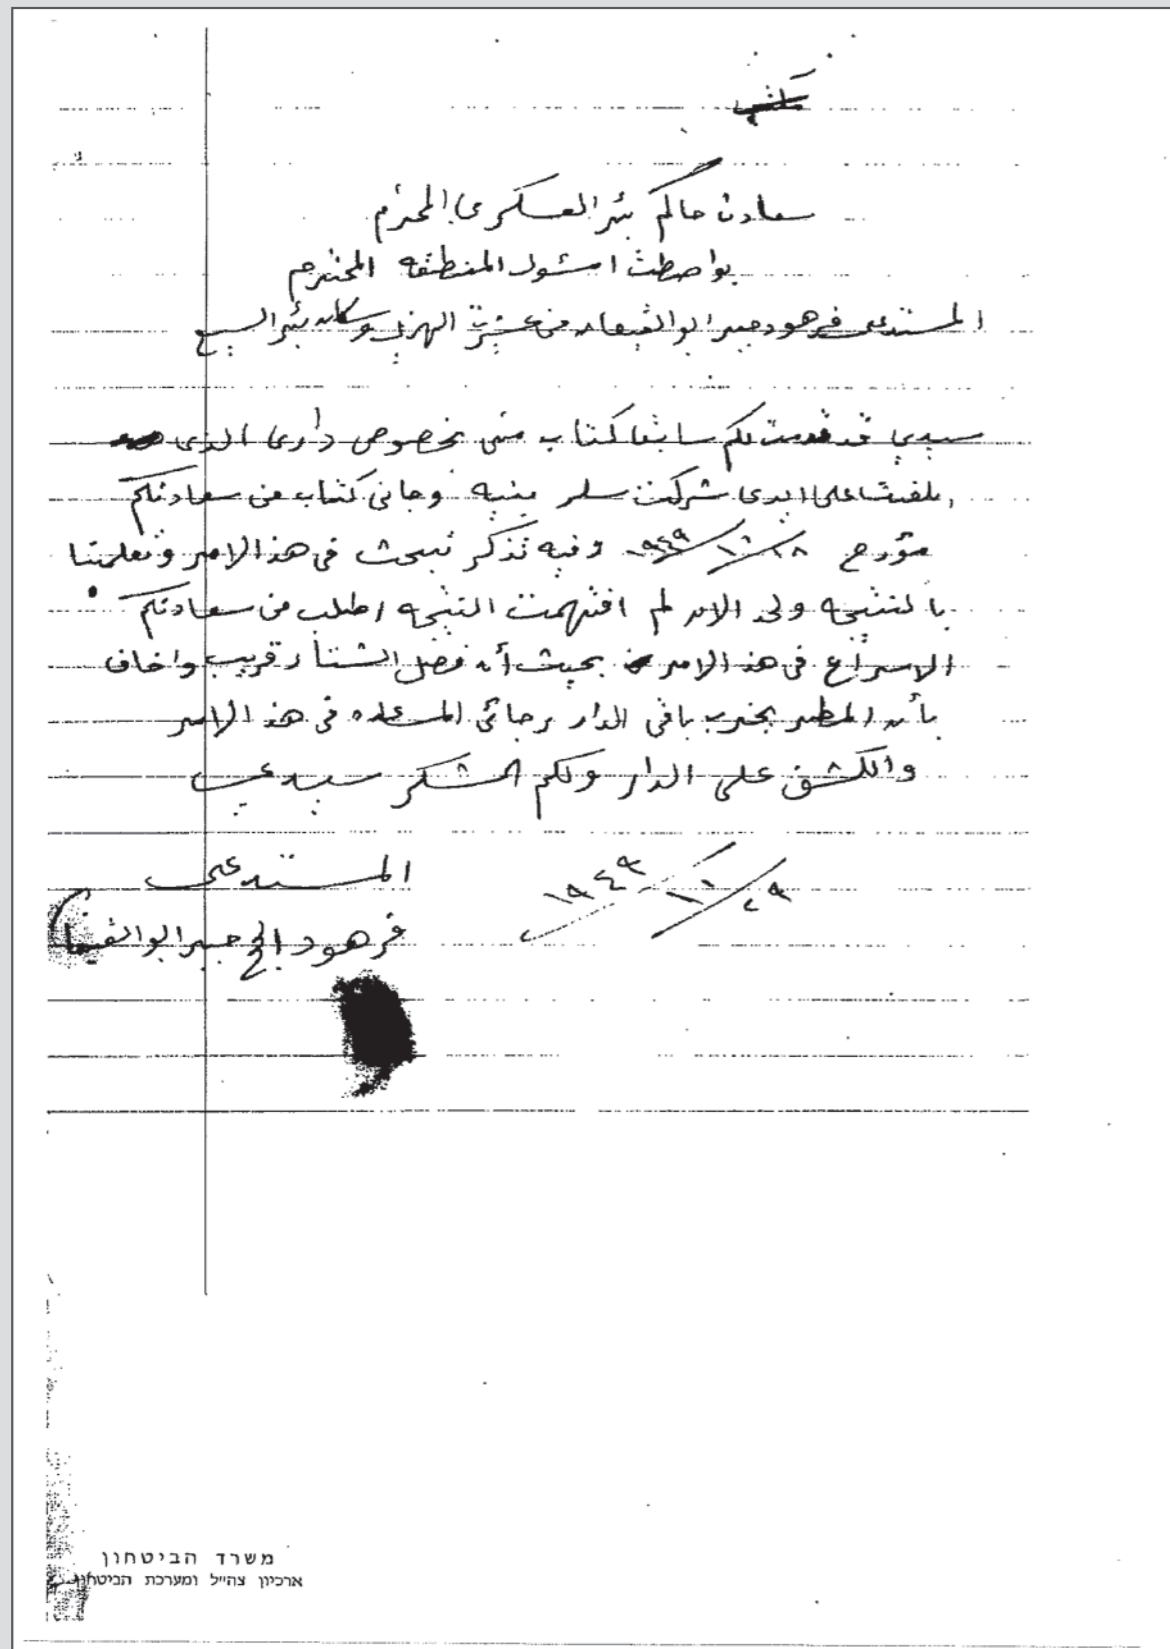 سعادت حاكم بئر العسكري المحترم
بواصطت امسئول المنطقه المحترم
المستدعى فرهود جبر ابو القيعان من عشيرت الهزيل وسكان بئر السبع
سيدي قد قدمت لكم سابقا كتاب منى بخصوص دارى الذى
على ايدى شركت وجانى كتاب من سعادتكم
مؤرخ ١٩٤٩ وفيه تذكر تبحث فى هذ الامر وتعلمنا
بالنتيجه ولحد الان لم افتهمت النتيجه اطلب من سعادتكم
الاسراع فى هذ الامر بحيث أن فصل الشتاء قريب واخاف
بأن المطر يخرب باقى الدار برجائى المساعده فى هذ الامر
والكشف على الدار ولكم الشكر سيدي
المستدعى
٢٩/١١/١٩٤٩
فرهود الحج جبر ابو القيعا
משרד הביטחון
ארכיון צה״ל ומערכת הביטחון